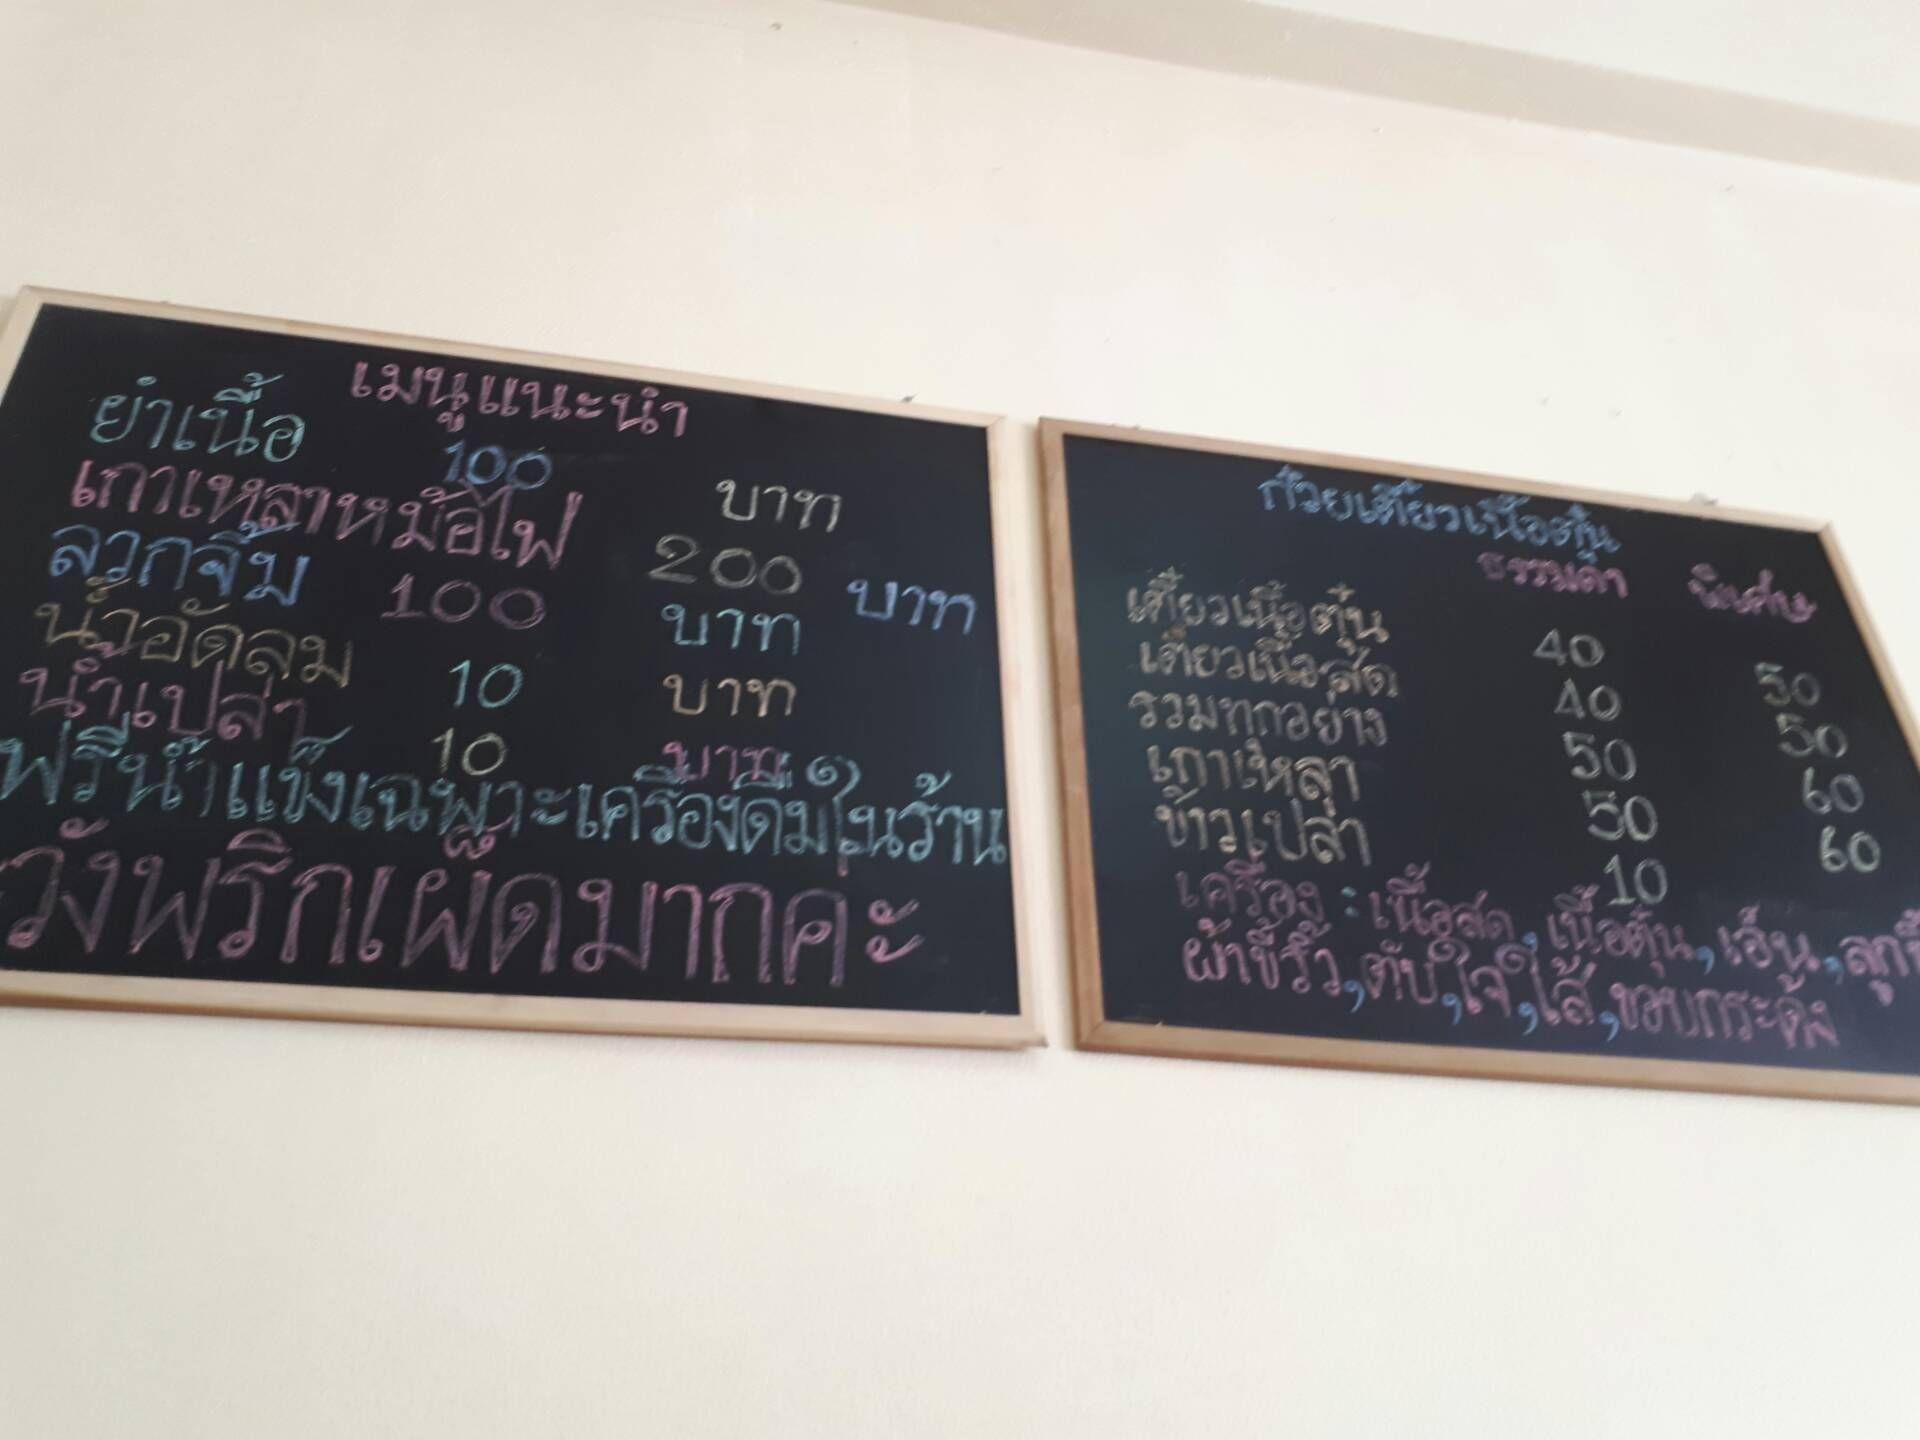 เมนูแนะนำ
ยำเนื้อ 100 บาท
เกาเหลาหม้อไฟ 200 บาท
ลวกจิ้ม 100 บาท
น้ำอัดลม 10 บาท
น้ำเปล่า 10 บาท
ฟรีน้ำแข็งเฉพาะเครื่องดื่มในร้าน
ระวังพริกเผ็ดมากค่ะ
ก๋วยเตี๋ยวเนื้อตุ๋น
ธรรมดา พิเศษ
เตี๋ยวเนื้อตุ๋น 40 50
เตี๋ยวเนื้อสด 40 50
รวมทุกอย่าง 50 60
เกาเหลา 50 60
ข้าวเปล่า 10
เครื่อง : เนื้อสด, เนื้อตุ๋น, เอ็น, ลูกชิ้
ผ้าขี้ริ้ว, ตับ, ใจ, ไส้, ขอบกระด้ง